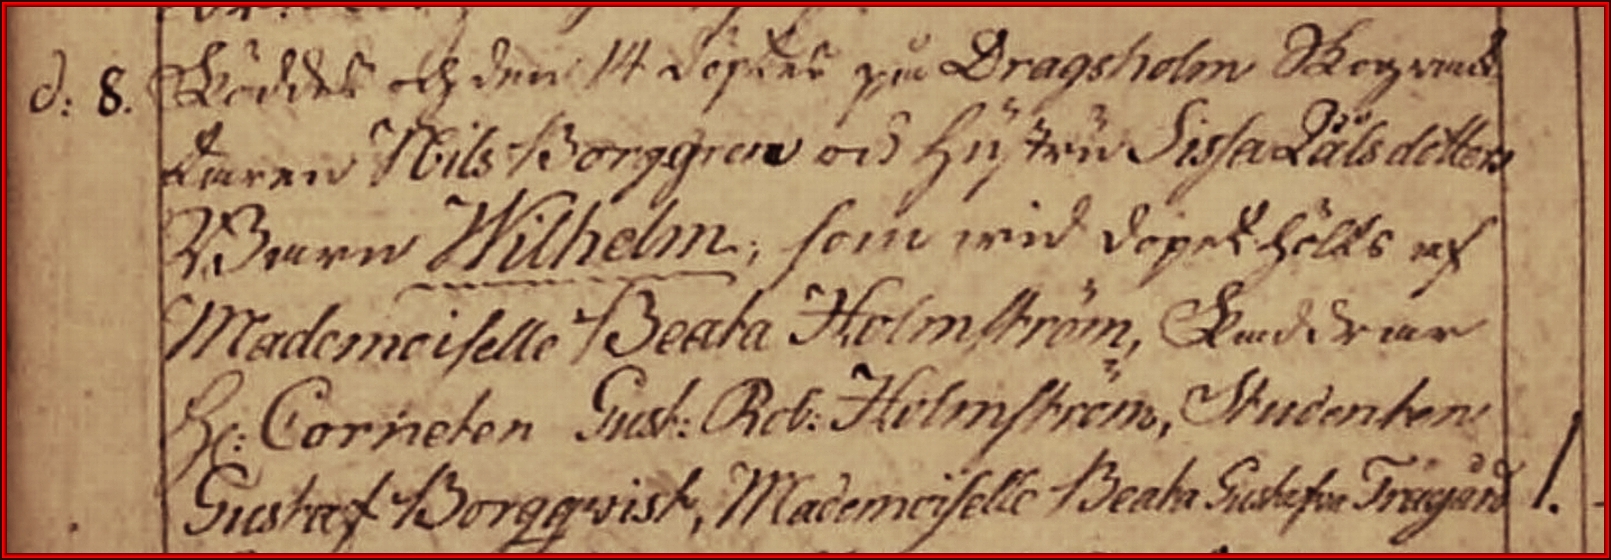 d: 8. Föddes och den 14 döptes på Dragsholm Skogvack
taren Nils Borggren och Hustru Sissa Pålsdotters
Barn Wilhelm, som wid dopet hölts af
Mademoiselle Beata Holmström, Faddrar
Hr: Corneten Gust: Rob: Holmström, Studenten
Gustaf Borgqwist, Mademoiselle Beata Gustafva Trägård 1.